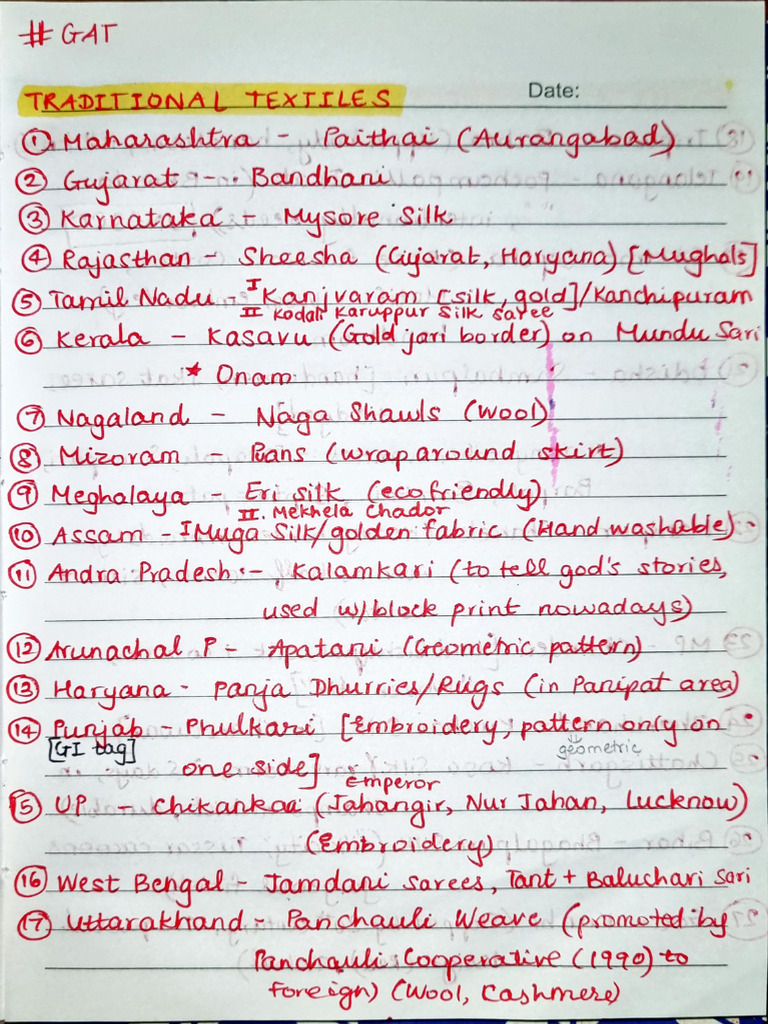 #GAT
TRADITIONAL TEXTILES
Date:
① Maharashtra - Paithai (Aurangabad)
② Gujarat - Bandhani
③ Karnataka - Mysore Silk
④ Rajasthan - Sheesha (Gujarat, Haryana) [Mughals]
⑤ Tamil Nadu - I Kanjvaram [silk, gold]/Kanchipuram
II Kodali Karuppur Silk Saree
⑥ Kerala - Kasavu (Gold jari border) on Mundu Sari
* Onam
⑦ Nagaland - Naga Shawls (Wool)
⑧ Mizoram - Puans (wrap around skirt)
⑨ Meghalaya - Eri silk (eco friendly)
II. Mekhela Chador
⑩ Assam - I Muga Silk/golden fabric (Hand washable)
⑪ Andra Pradesh - Kalamkari (to tell god's stories,
used w/block print nowadays)
⑫ Arunachal P - Apatani (Geometric pattern)
⑬ Haryana - Panja Dhurries/Rugs (in Panipat area)
⑭ Punjab - Phulkari [Embroidery, pattern only on
[GI tag] geometric
one side]
Emperor
⑮ UP - Chikankaa (Jahangir, Nur Jahan, Lucknow)
(Embroidery)
⑯ West Bengal - Jamdani sarees, Tant + Baluchari Sari
⑰ Uttarakhand - Panchauli Weave (promoted by
Panchauli Cooperative (1990) to
foreign) (Wool, Cashmere)